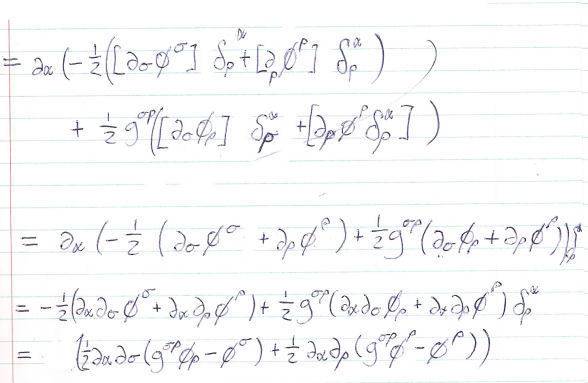 = ∂α(-½([∂σφ^σ] δρ^α + [∂ρφ^ρ] δρ^α) )
+ ½g^σρ([∂σφρ] δρ^α + [∂ρφ^ρ δρ^α])
= ∂α(-½(∂σφ^σ + ∂ρφ^ρ) + ½g^σρ(∂σφρ + ∂ρφ^ρ))δρ^α
= -½(∂α∂σφ^σ + ∂α∂ρφ^ρ) + ½g^σρ(∂α∂σφρ + ∂α∂ρφ^ρ)δρ^α
= (½∂α∂σ(g^σρφρ - φ^σ) + ½∂α∂ρ(g^σρφ^ρ - φ^ρ))